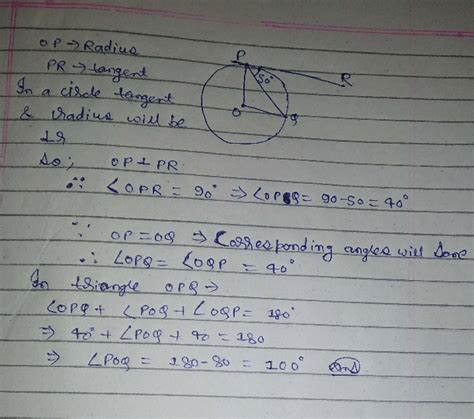 OP → Radius
PR → tangent
In a circle tangent
& radius will be
⊥r
So; OP ⊥ PR
∴ ∠OPR = 90° ⇒ ∠OPQ = 90-50 = 40°
∵ OP = OQ ⇒ Corresponding angles will Same
∴ ∠OPQ = ∠OQP = 40°
In triangle OPQ →
∠OPQ + ∠POQ + ∠OQP = 180°
⇒ 40° + ∠POQ + 40 = 180
⇒ ∠POQ = 180-80 = 100° Ans
P
50°
R
O
Q